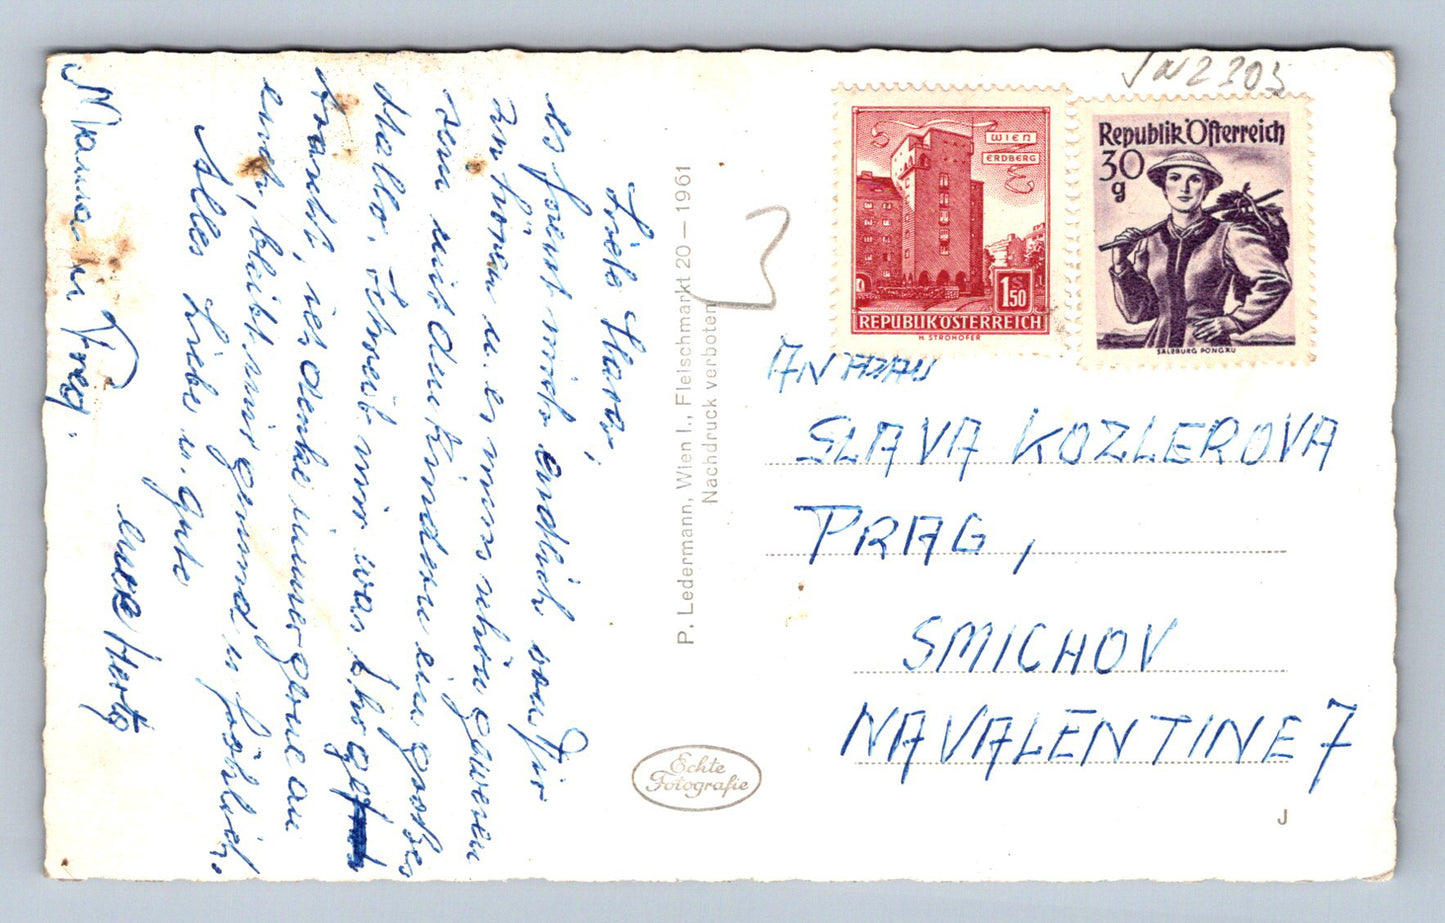 Liebe Slavi,
es freut mich endlich von Dir
zu hören u. es muss schön gewesen
sein mit den Kindern ein großes
Hallo. Schreib mir was Ihr
braucht, ich denke immer gerne an
euch, bleibt mir gesund u. fröhlich.
Alles Liebe u. Gute
eure Herta
Mama u. Fred.
P. Ledermann, Wien I., Fleischmarkt 20 — 1961
Nachdruck verboten
Echte
Fotografie
WIEN
ERDBERG
S
1.50
REPUBLIK ÖSTERREICH
H. STROHOFER
Republik Österreich
30
g
SALZBURG PONGAU
ANFRAU
SLAVA KOZLEROVA
PRAG,
SMICHOV
NAVALENTINE 7
J